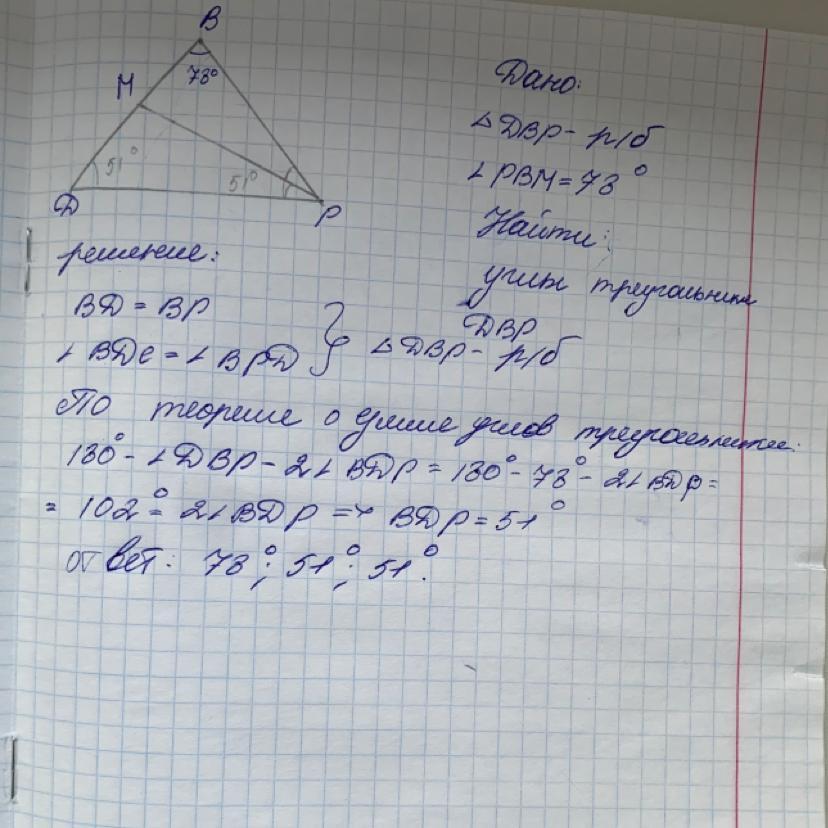 B
78°
M
51°
51°
D
P
Дано:
△DBP - р/б
∠PBM = 78°
Найти:
углы треугольника
DBP
решение:
BD = BP
∠BDC = ∠BPD } △DBP - р/б
По теореме о сумме углов треугольника:
180° - ∠DBP - 2∠BDP = 180° - 78° - 2∠BDP =
= 102° = 2∠BDP => BDP = 51°
ответ: 78°; 51°; 51°.